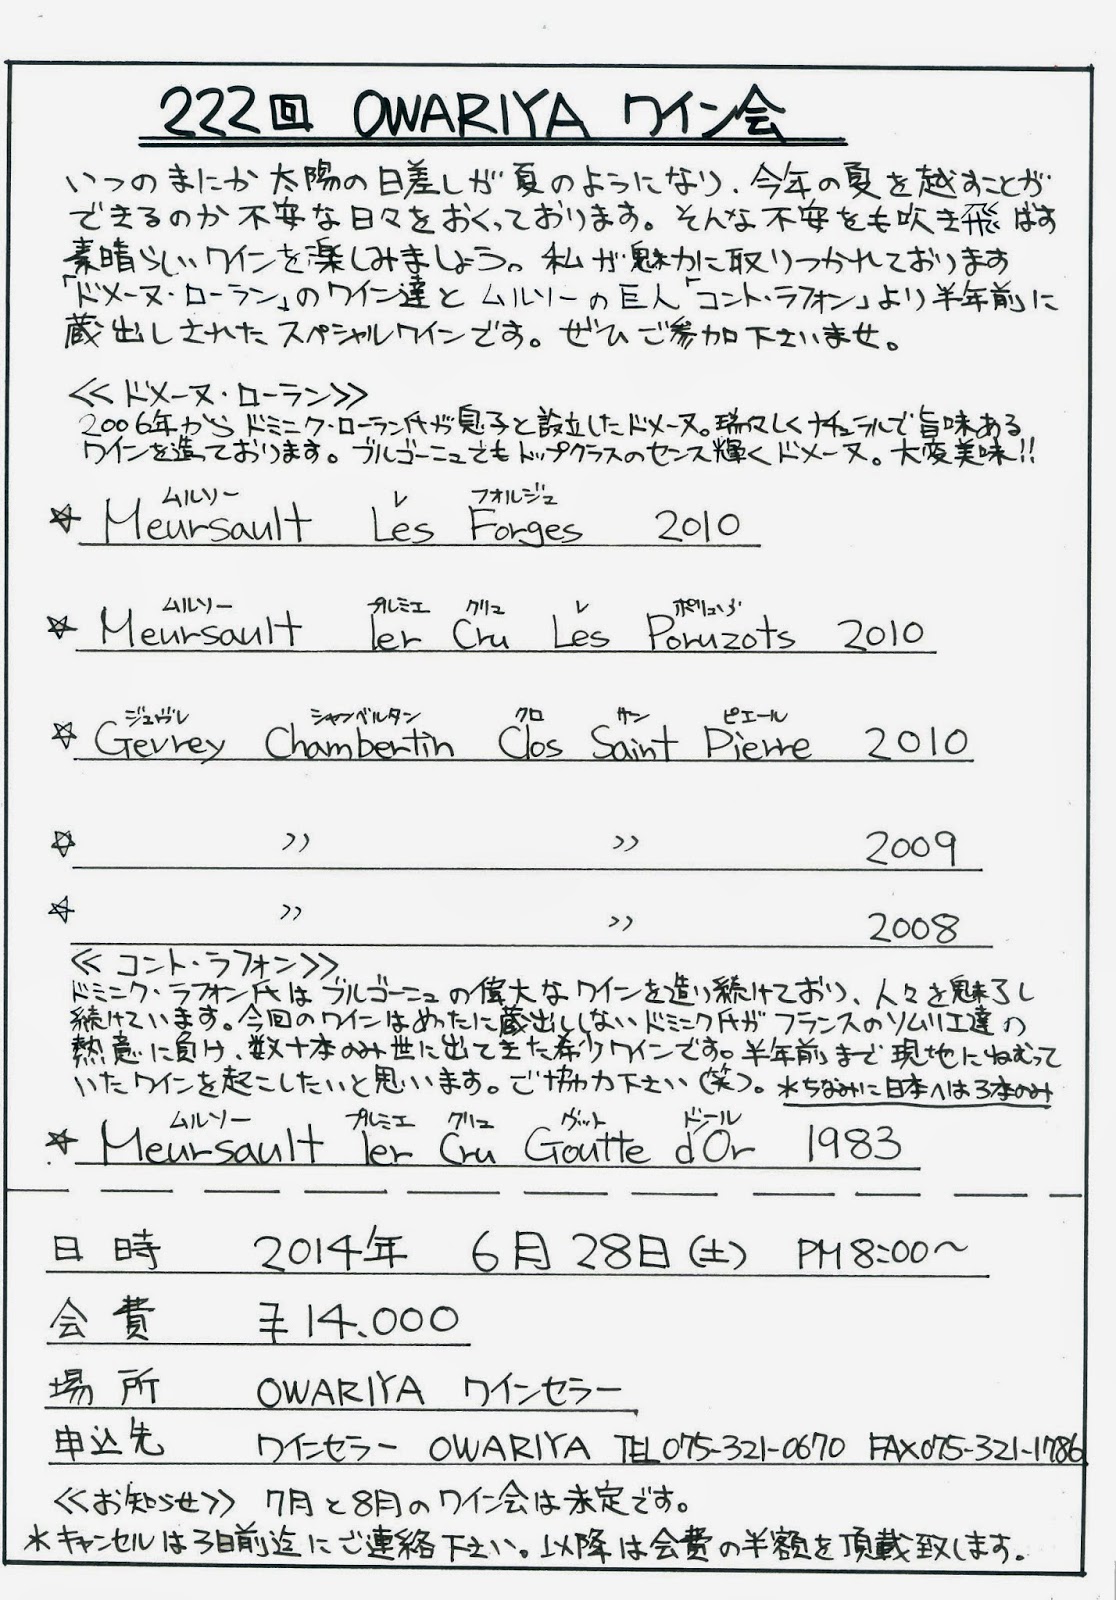 222回 OWARIYA ワイン会
いつのまにか太陽の日差しが夏のようになり、今年の夏を越すことが
できるのか不安な日々をおくっております。そんな不安をも吹き飛ばす
素晴らしいワインを楽しみましょう。私が魅力に取りつかれております
「ドメーヌ・ローラン」のワイン達とムルソーの巨人「コント・ラフォン」より半年前に
蔵出しされたスペシャルワインです。ぜひご参加下さいませ。
≪ドメーヌ・ローラン≫
2006年からドミニク・ローラン氏が息子と設立したドメーヌ。瑞々しくナチュラルで旨味ある
ワインを造っております。ブルゴーニュでもトップクラスのセンス輝くドメーヌ。大変美味!!
ムルソー レ フォルジュ
☆ Meursault Les Forges 2010
ムルソー プルミエ クリュ レ ポリュゾ
☆ Meursault 1er Cru Les Poruzots 2010
ジュヴレ シャンベルタン クロ サン ピエール
☆ Gevrey Chambertin Clos Saint Pierre 2010
☆ 〃 〃 2009
☆ 〃 〃 2008
≪コント・ラフォン≫
ドミニク・ラフォン氏はブルゴーニュの偉大なワインを造り続けており、人々を魅了し
続けています。今回のワインはめったに蔵出ししないドミニク氏がフランスのソムリエ達の
熱意に負け、数十本のみ世に出てきた希少ワインです。半年前まで現地にねむって
いたワインを起こしたいと思います。ご協力下さい(笑)。*ちなみに日本へは3本のみ
ムルソー プルミエ クリュ グット ドール
☆ Meursault 1er Cru Goutte d'Or 1983
日時 2014年 6月28日(土) PM8:00〜
会費 ¥14.000
場所 OWARIYA ワインセラー
申込先 ワインセラー OWARIYA TEL075-321-0670 FAX075-321-1786
≪お知らせ≫ 7月と8月のワイン会は未定です。
*キャンセルは3日前迄にご連絡下さい。以降は会費の半額を頂載致します。